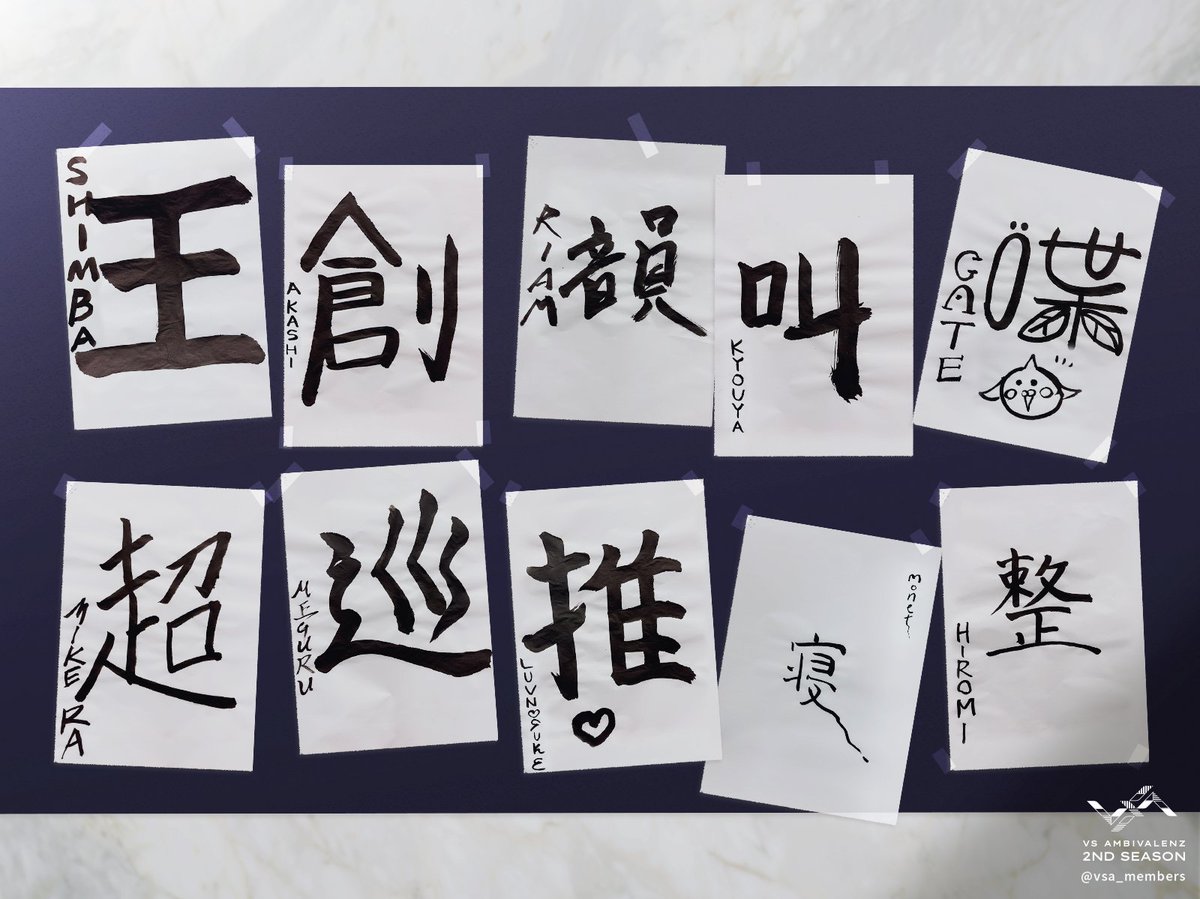 SHIMBA
王
AKASHI
創
RIAM
韻
KYOUYA
叫
GATE
喋
MIKERA
超
MEGURU
巡
LUVNOSUKE
推
♡
monet
寝
HIROMI
整
VS AMBIVALENZ
2ND SEASON
@vsa_members